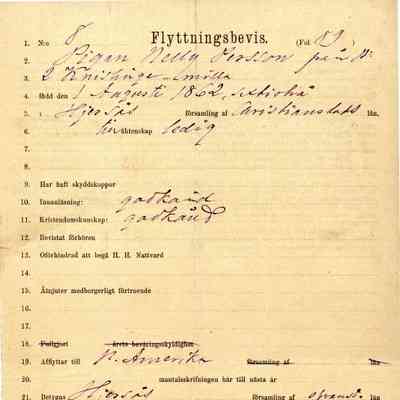 Flyttningsbevis.
1. N:o 8 (Fol. 89)
2. Pigan Nelly Persson på N:
3. 2 Knislinge
4. född den 1 Augusti 1862,
5. i Hjersås församling af Christianstads län,
6. äktenskap ledig
7.
8.
9. Har haft skyddskoppor
10. Innanläsning: godkänd
11. Kristendomskunskap: godkänd
12. Bevistat förhören
13. Oförhindrad att begå H. H. Nattvard
14.
15. Åtnjuter medborgerligt förtroende
16.
17.
18. Fullgjort årets beväringsskyldighet
19. Afflyttar till N. Amerika församling af län
20. mantalsskrifningen här till nästa år
21. Betygas Hjersås församling af